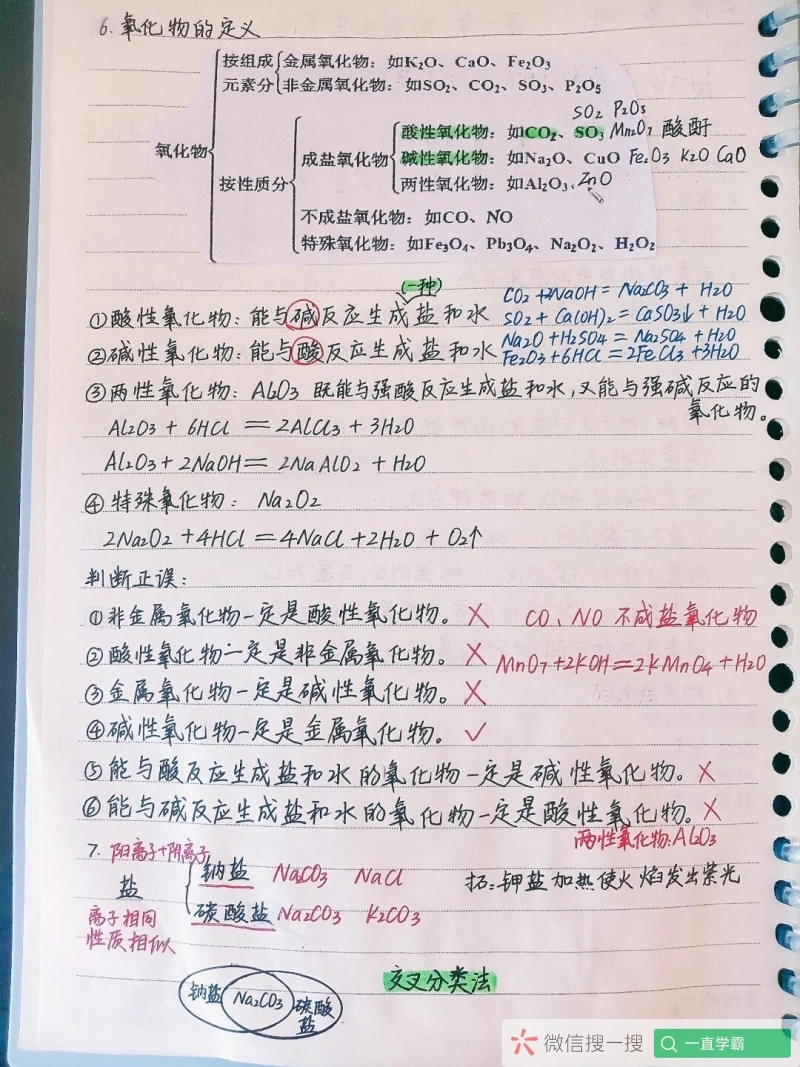 6. 氧化物的定义
按组成 金属氧化物：如K₂O、CaO、Fe₂O₃
元素分 非金属氧化物：如SO₂、CO₂、SO₃、P₂O₅
SO₂ P₂O₅
酸性氧化物：如CO₂、SO₃ Mn₂O₇ 酸酐
氧化物 成盐氧化物 碱性氧化物：如Na₂O、CuO Fe₂O₃ K₂O CaO
按性质分 两性氧化物：如Al₂O₃、ZnO
不成盐氧化物：如CO、NO
特殊氧化物：如Fe₃O₄、Pb₃O₄、Na₂O₂、H₂O₂
(一种)
①酸性氧化物：能与碱反应生成盐和水
CO₂+2NaOH=Na₂CO₃+H₂O
SO₂+Ca(OH)₂=CaSO₃↓+H₂O
②碱性氧化物：能与酸反应生成盐和水
Na₂O+H₂SO₄=Na₂SO₄+H₂O
Fe₂O₃+6HCl=2FeCl₃+3H₂O
③两性氧化物：Al₂O₃ 既能与强酸反应生成盐和水，又能与强碱反应的
氧化物。
Al₂O₃+6HCl=2AlCl₃+3H₂O
Al₂O₃+2NaOH=2NaAlO₂+H₂O
④特殊氧化物：Na₂O₂
2Na₂O₂+4HCl=4NaCl+2H₂O+O₂↑
判断正误：
①非金属氧化物一定是酸性氧化物。× CO、NO 不成盐氧化物
②酸性氧化物一定是非金属氧化物。× MnO₇+2KOH=2KMnO₄+H₂O
③金属氧化物一定是碱性氧化物。×
④碱性氧化物一定是金属氧化物。✓
⑤能与酸反应生成盐和水的氧化物一定是碱性氧化物。×
⑥能与碱反应生成盐和水的氧化物一定是酸性氧化物。×
两性氧化物：Al₂O₃
7. 阳离子+阴离子
盐 钠盐 Na₂CO₃ NaCl 拓：钾盐加热使火焰发出紫光
碳酸盐 Na₂CO₃ K₂CO₃
离子相同
性质相似
交叉分类法
钠盐 Na₂CO₃ 碳酸
盐
微信搜一搜 一直学霸